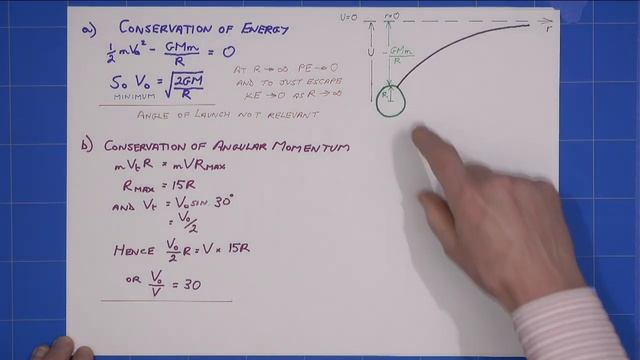 a) CONSERVATION OF ENERGY
½ mV₀² - GMm/R = 0
SO V₀ = √(2GM/R)
MINIMUM
AT R → ∞ PE → 0
AND TO JUST ESCAPE
KE → 0 AS R → ∞
ANGLE OF LAUNCH NOT RELEVANT
b) CONSERVATION OF ANGULAR MOMENTUM
mVₜR = mVRMAX
RMAX = 15R
AND Vₜ = V₀ SIN 30°
= V₀/2
HENCE V₀/2 R = V × 15R
OR V₀/V = 30
U=0
r=∞
r
U
- GMm/R
R